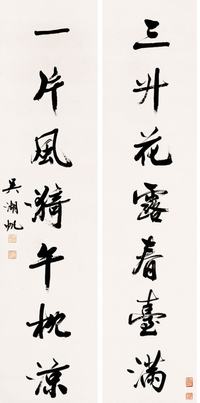 三升花露春臺滿
一片風漪午枕涼
吳湖帆